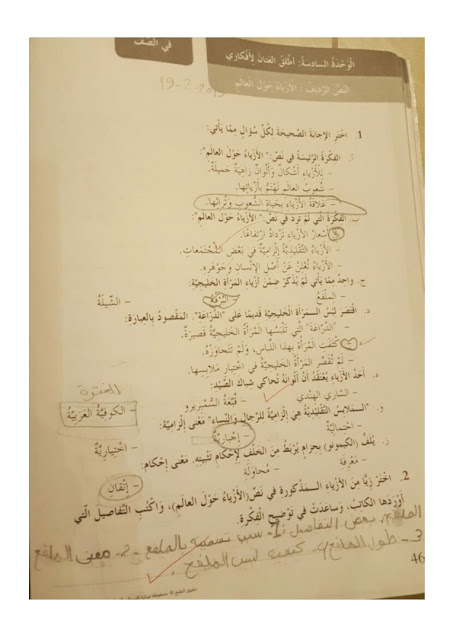 في الصّف
الوَحْدَةُ السادسة: أُطْلِقُ العنانَ لأفكاري
النَّصُّ الرّديفُ: الأزياءُ حَوْلَ العالَمِ
19-2-
1. اخْتَرِ الإجابَةَ الصَّحيحَةَ لِكُلِّ سُؤالٍ مِمّا يَأْتي:
أ. الفِكْرَةُ الرَّئيسَةُ في نَصِّ: "الأزْياءُ حَوْلَ العالَمِ":
- لِلأزْياءِ أشْكالٌ وَألْوانٌ زاهِيَةٌ جَميلَةٌ.
- شُعوبُ العالَمِ تَهْتَمُّ بِأزْيائِها.
- عَلاقَةُ الأزْياءِ بِحَياةِ الشُّعوبِ وَتُراثِها.
ب. الفِكْرَةُ الَّتي لَمْ تَرِدْ في نَصِّ: "الأزْياءُ حَوْلَ العالَمِ":
أسْعارُ الأزْياءِ تَزْدادُ ارْتِفاعًا.
- الأزْياءُ التَّقْليدِيَّةُ إلْزامِيَّةٌ في بَعْضِ المُجْتَمَعاتِ.
- الأزْياءُ تُعْلِنُ عَنْ أصْلِ الإنْسانِ وَجَوْهَرِهِ.
ج. واحِدٌ مِمّا يَأْتي لَمْ يُذْكَرْ ضِمْنَ أزْياءِ المَرْأةِ الخَليجِيَّةِ:
- المِلْفَعُ - الشّيلَةُ
د. اقْتَصَرَ لِبْسُ المَرْأةِ الخَليجِيَّةِ قَديمًا عَلى "الدَّرّاعَةِ". المَقْصودُ بِالعِبارَةِ:
- "الدَّرّاعَةُ" الَّتي تَلْبَسُها المَرْأةُ الخَليجِيَّةُ قَصيرَةٌ.
- كْتَفَتِ المَرْأةُ بِهذا اللِّباسِ، وَلَمْ تَتَجاوَزْهُ.
- لَمْ تُقَصِّرِ المَرْأةُ الخَليجِيَّةُ في اخْتِيارِ مَلابِسِها.
ه. أحَدُ الأزْياءِ يُعْتَقَدُ أنَّ ألْوانَهُ تُحاكي شِباكَ الصَّيْدِ:
- السّاري الهِنْدي - قُبَّعَةُ السُّمْبريرو - الكوفِيَّةُ العَرَبِيَّةُ
و. "المَلابِسُ التَّقْليدِيَّةُ هِيَ إلْزامِيَّةٌ لِلرِّجالِ وَالنِّساءِ" مَعْنى إلْزامِيَّةٌ:
- احْتِمالِيَّةٌ - إجْبارِيَّةٌ - اخْتِيارِيَّةٌ
ز. يُلَفُّ (الكيمونو) بِحِزامٍ يُرْبَطُ مِنَ الخَلْفِ لِإحْكامِ تَثْبيتِهِ. مَعْنى إحْكام:
- مَعْرِفَة - مُحاوَلَة - إتْقان
2. اخْتَرْ زِيًّا مِنَ الأزْياءِ المَذْكورَةِ في نَصِّ (الأزْياءُ حَوْلَ العالَمِ)، وَاكْتُبِ التَّفاصيلَ الَّتي
أوْرَدَها الكاتِبُ، وَساعَدَتْ في تَوْضيحِ الفِكْرَةِ.
الملفع. بعض التفاصيل: 1- سبب تسميته بالملفع 2- معنى الملفع
3- طول الملفع كيفية لبس الملفع.
46